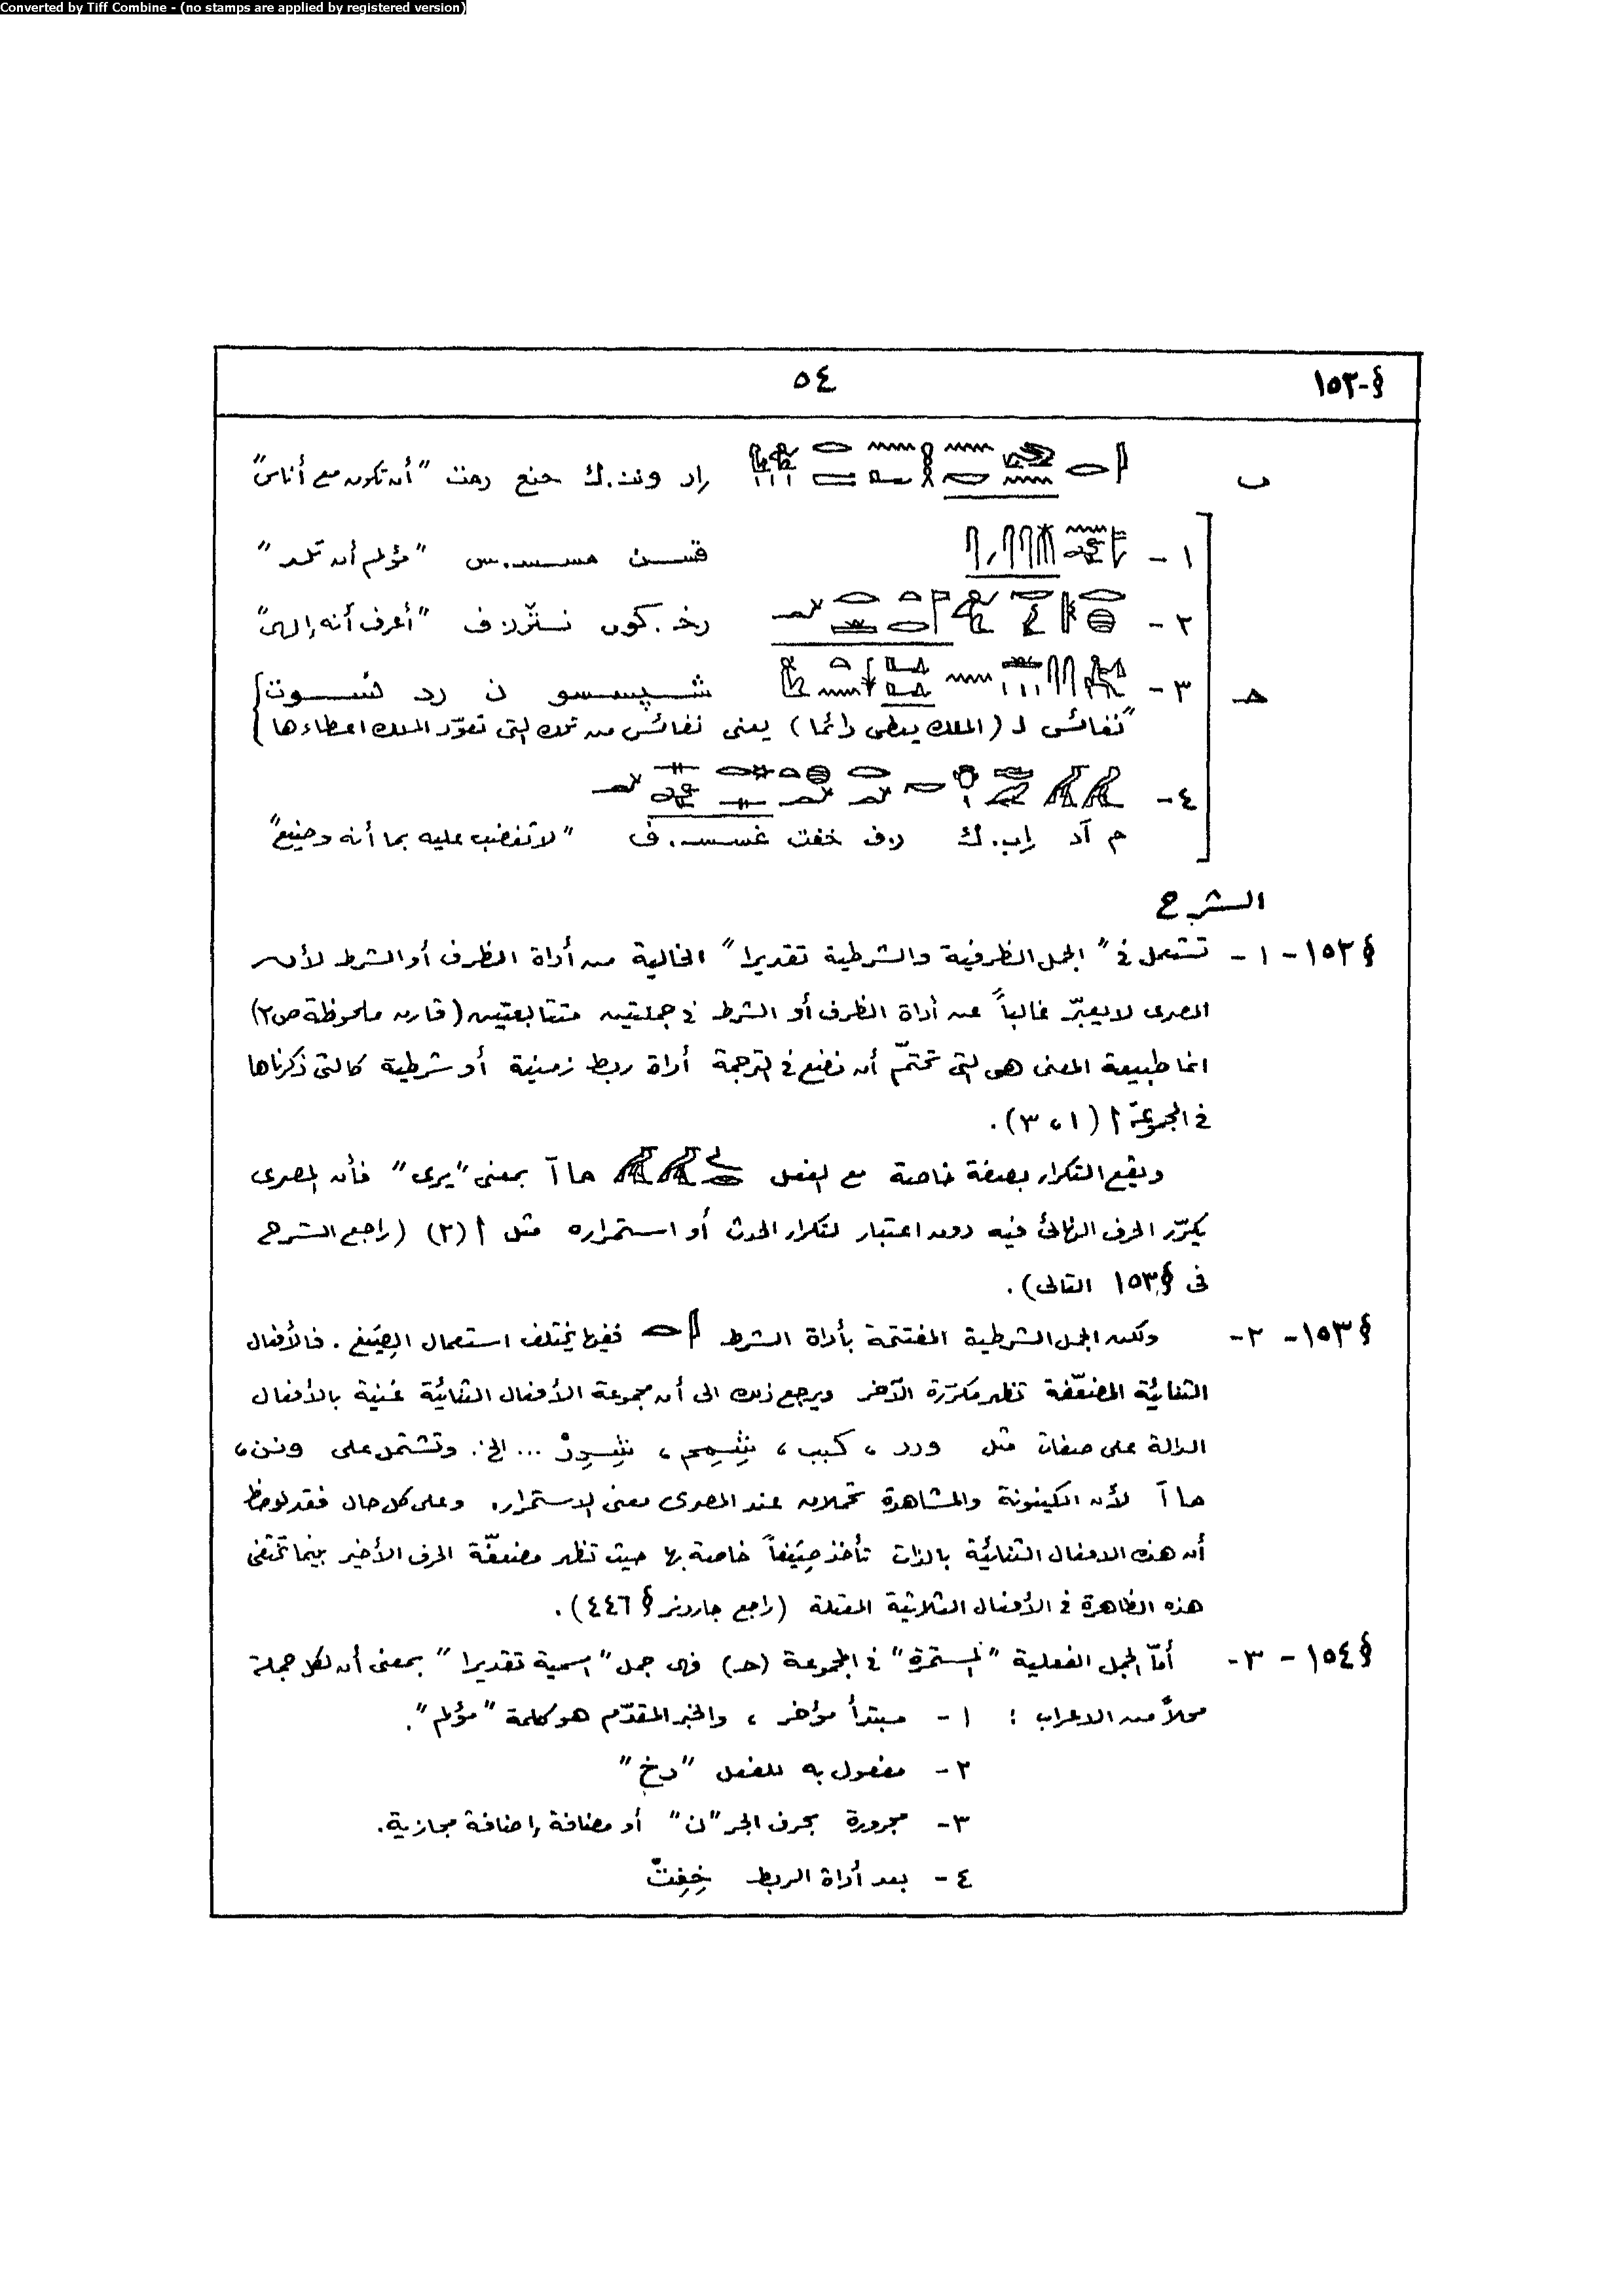 Converted by Tiff Combine - (no stamps are applied by registered version)
§-١٥٢
٥٤
ب إر ونن.ك حنع رمث "أن تكون مع أناس"
١ - قسن مسس.س "مؤلم أن تلد"
٢ - رخ.كون نتر.ف "أعرف أنه إلهى"
حـ ٣ - شپسسو ن دد نسوت
"نفائس لـ (الملك يعطى دائما) يعنى نفائس من تلك التى تعوّد الملك اعطاءها
٤ -
م آد إب.ك ر.ف خفت غسس.ف "لا تغضب عليه بما أنه وضيع"
الشرح
§١٥٢ - ١ - تستعمل فى "الجمل الظرفية والشرطية تقديرا" الخالية من أداة الظرف أو الشرط لأن
المصرى لا يعبّر غالباً عن أداة الظرف أو الشرط فى جملتين متتابعتين (قارن ملحوظة ص٢)
انما طبيعة المعنى هى التى تحتّم أن نضع فى الترجمة أداة ربط زمنية أو شرطية كالتى ذكرناها
فى المجموعة أ (١، ٣).
ويقع التكرار بصفة خاصة مع الفعل ماآ بمعنى "يرى" فأن المصرى
يكرّر الحرف النهائى فيه دون اعتبار لتكرار الحدث أو استمراره مثل أ (٢) (راجع الشرح
فى §١٥٣ التالى).
§١٥٣ - ٢ - ولكن الجمل الشرطية المفتتحة بأداة الشرط ففيها يختلف استعمال الصِيَغ. فالأفعال
الثنائيّة المضعّفة تظهر مكرّرة الآخر ويرجع ذلك الى أن مجموعة الأفعال الثنائيّة غنية بالأفعال
الدالة على صفات مثل ورر، كبب، ... الخ. وتشتمل على ونن،
ماآ لأن الكينونة والمشاهدة تحملان عند المصرى معنى الاستمرار. وعلى كل حال فقد لوحظ
أن هذه الافعال الثنائيّة بالذات تأخذ صِيَغاً خاصة بها حيث تظهر مضعفّة الحرف الأخير بينما تختفى
هذه الظاهرة فى الأفعال الثلاثية المعتلة (راجع جاردنر § ٤٤٦).
§١٥٤ - ٣ - أمّا الجمل الفعلية "المستمرّة" فى المجموعة (حـ) فهى جمل "اسمية تقديرا" بمعنى أن لكل جملة
محلاً من الاعراب: ١ - مبتدأ مؤخر، والخبر المقدّم هو كلمة "مؤلم".
٢ - مفعول به للفعل "رخ"
٣ - مجرورة بحرف الجر "ن" أو مضافة إضافة مجازية.
٤ - بعد أداة الربط خِفِتْ